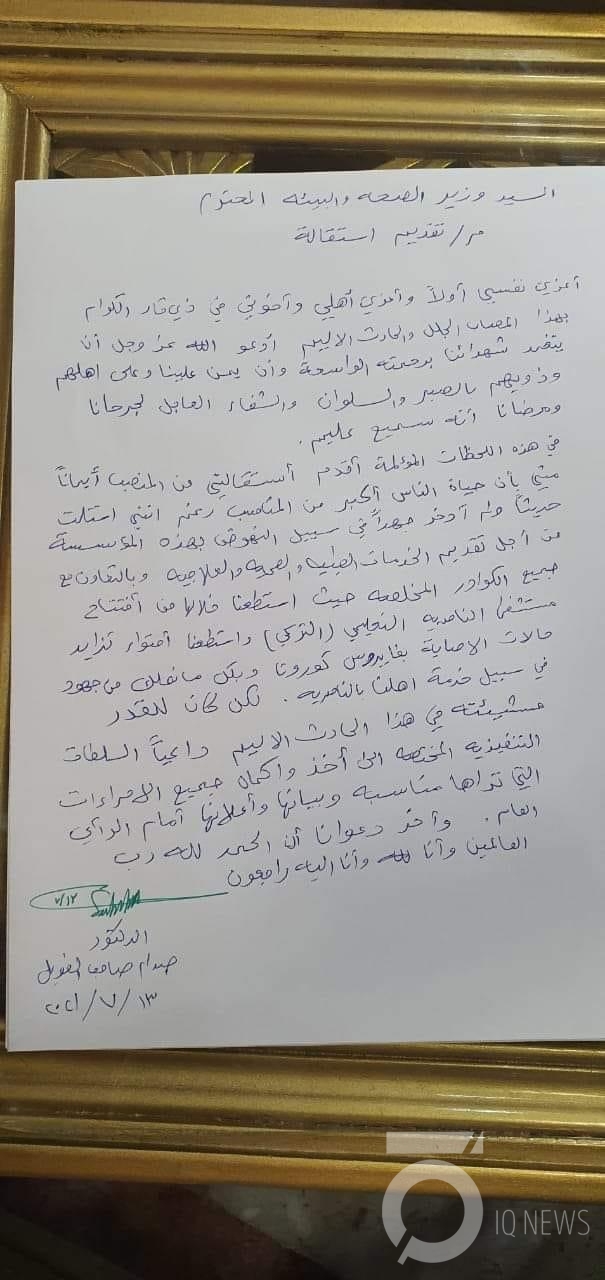 السيد وزير الصحه والبيئه المحترم
م/ تقديم استقالة
أعزي نفسي أولاً وأعزي أهلي وأخوتي في ذي قار الكرام
بهذا المصاب الجلل والحادث الاليم أدعو الله عز وجل أن
يتغمد شهدائنا برحمته الواسعة وأن يمن علينا وعلى اهلهم
وذويهم بالصبر والسلوان والشفاء العاجل لجرحانا
ومرضانا أنه سميع عليم.
في هذه اللحظات المؤلمة أقدم أستقالتي من المنصب أيماناً
مني بأن حياة الناس أكبر من المناصب رغم انني استلمت
حديثاً ولم أدخر جهداً في سبيل النهوض بهذه المؤسسة
من أجل تقديم الخدمات الطبيه والصحيه والعلاجيه وبالتعاون مع
جميع الكوادر المخلصه حيث استطعنا خلالها من أفتتاح
مستشفى الناصريه التعليمي (التركي) واستطعنا أحتواء تزايد
حالات الاصابة بفايروس كورونا وبكل مانملك من جهود
في سبيل خدمة اهلنا بالناصريه. لكن كان للقدر
مشيئته في هذا الحادث الاليم داعياً السلطات
التنفيذيه المختصه الى أخذ واكمال جميع الاجراءات
التي تراها مناسبه وبيانها وأعلانها أمام الرأي
العام. وأخر دعوانا أن الحمد لله رب
العالمين وأنا لله وأنا اليه راجعون
٧/١٣
الدكتور
صدام صاحب الطويل
٢٠٢١/٧/١٣
IQ NEWS